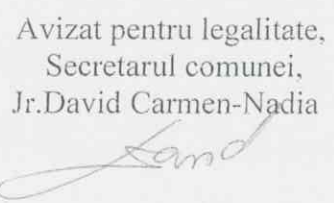 Avizat pentru legalitate,
Secretarul comunei,
Jr.David Carmen-Nadia